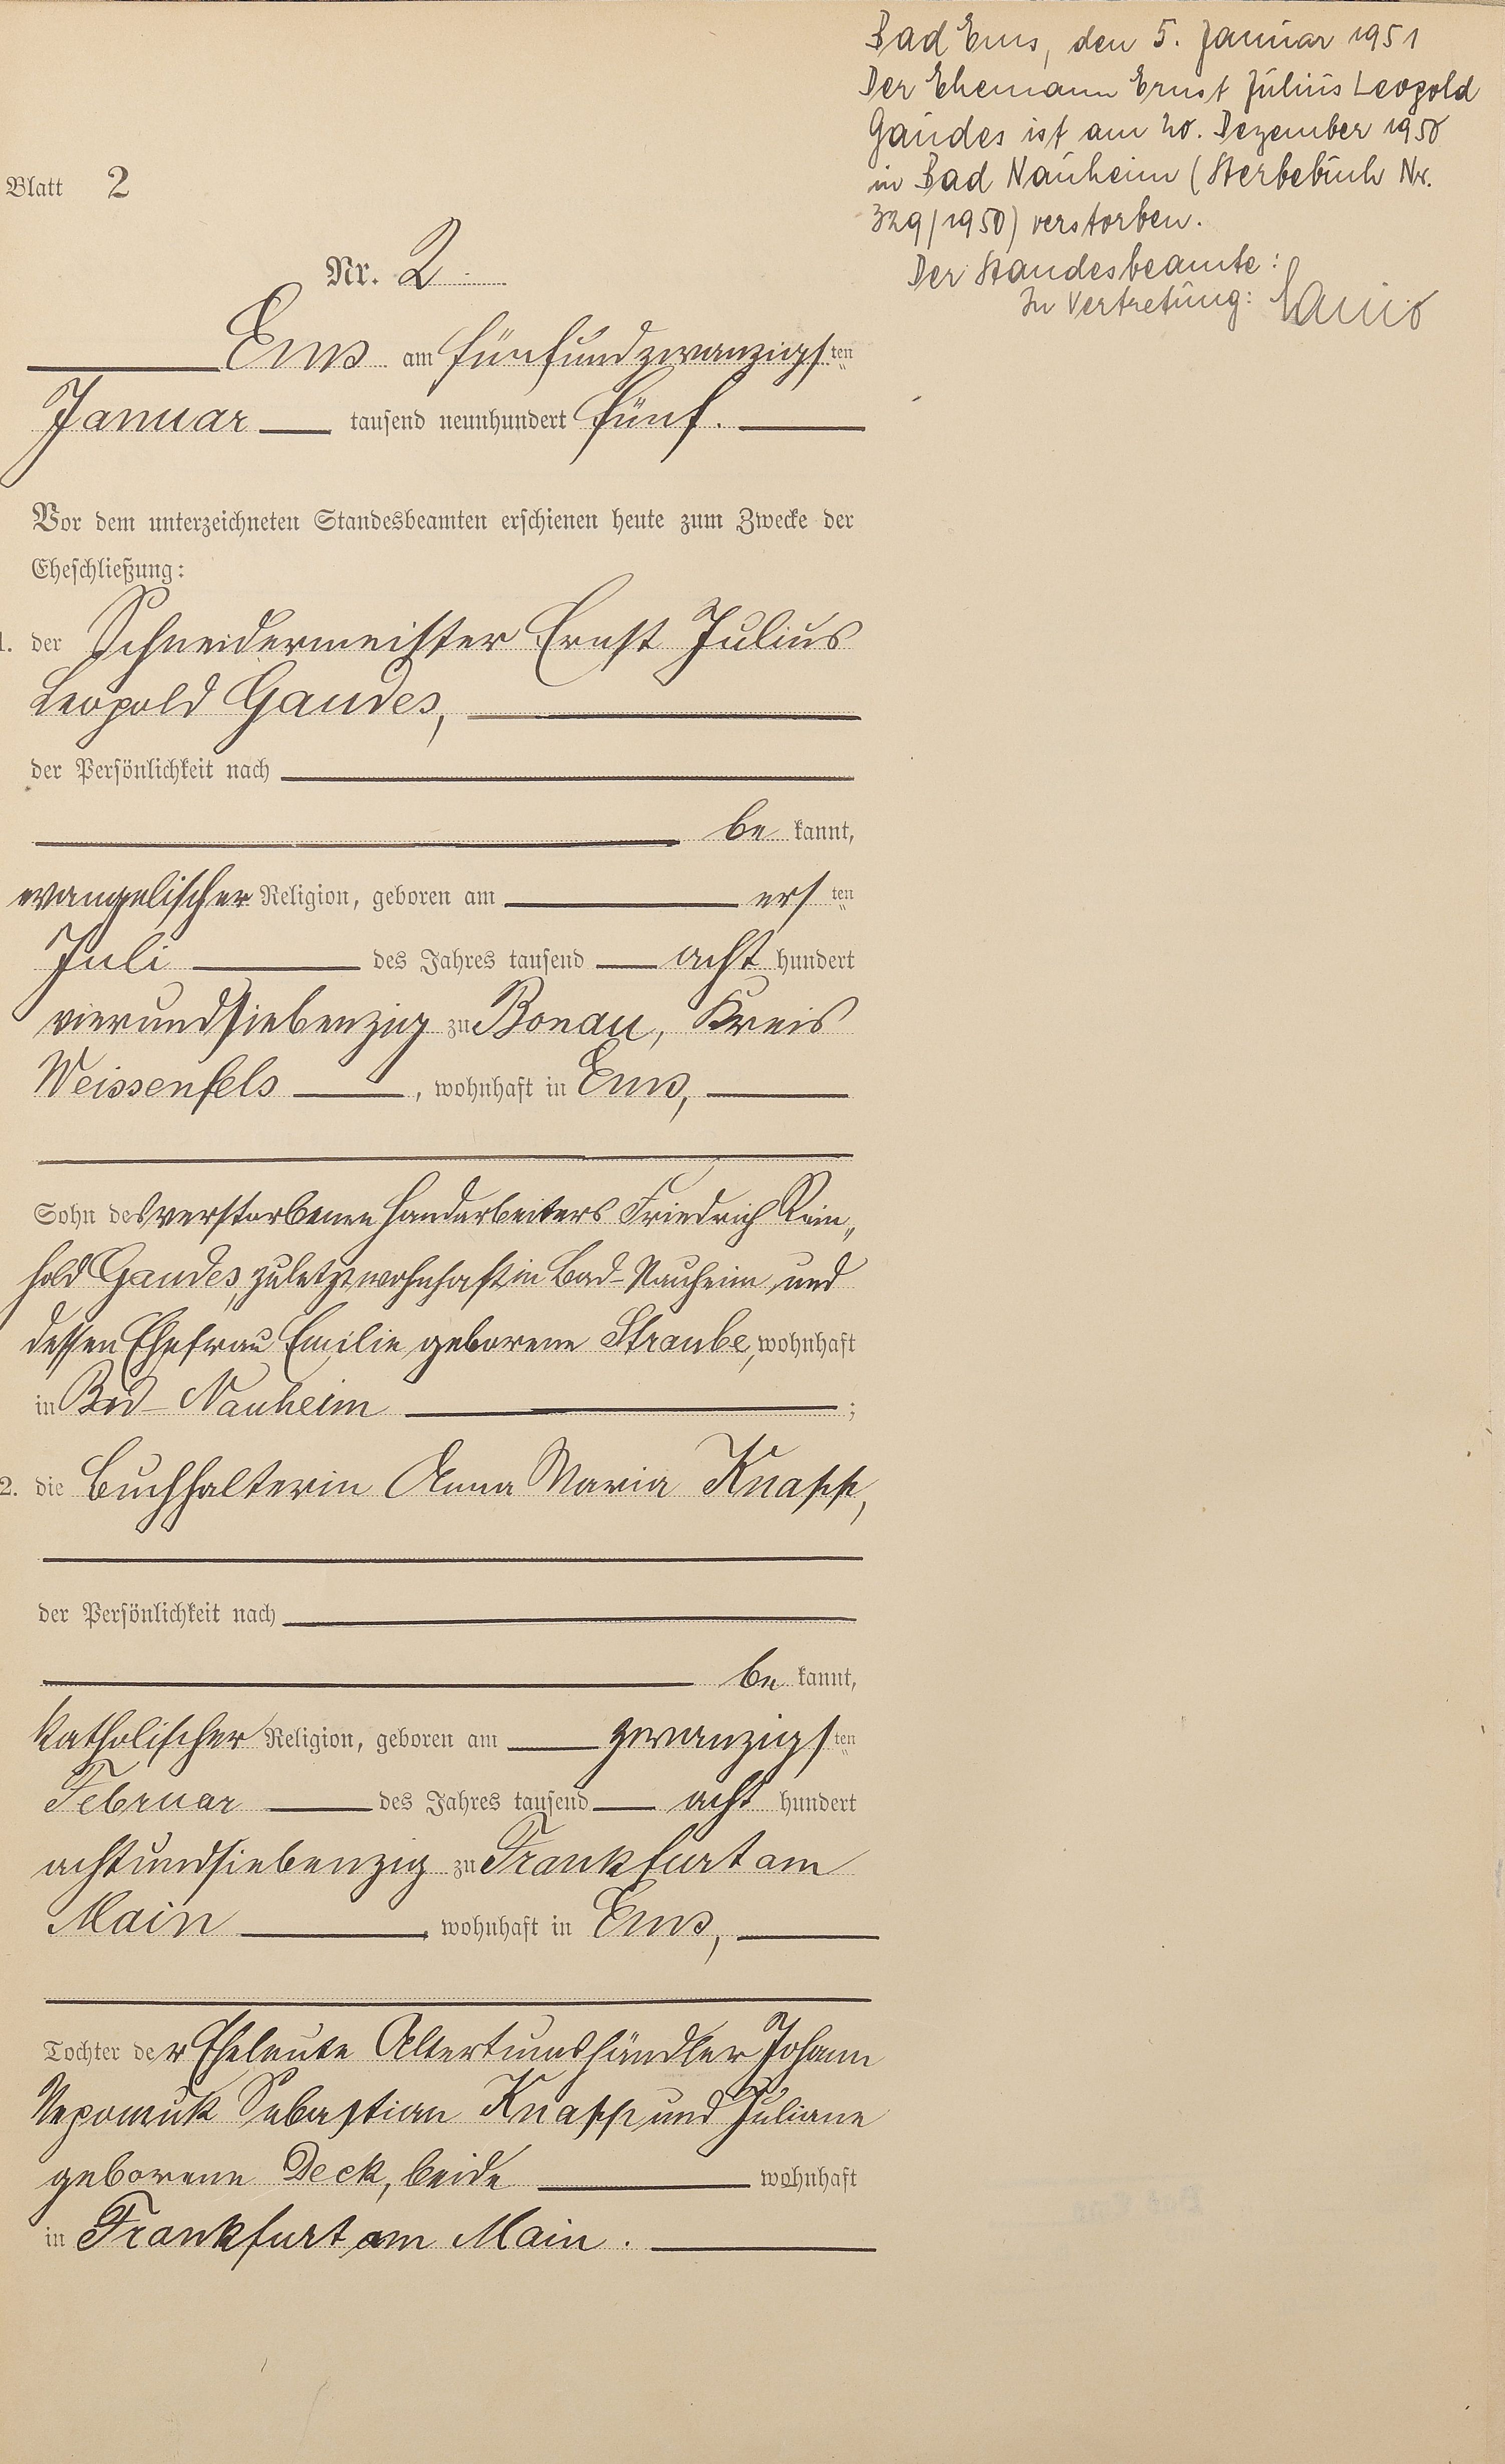 Bad Ems, den 5. Januar 1951
Der Ehemann Ernst Julius Leopold
Gaudes ist am 20. Dezember 1950
in Bad Nauheim (Sterbebuch Nr.
329/1950) verstorben.
Der Standesbeamte:
In Vertretung:
Blatt 2
Nr. 2.
Ems am fünfundzwanzigsten
Januar tausend neunhundert fünf.
Vor dem unterzeichneten Standesbeamten erschienen heute zum Zwecke der
Eheschließung:
1. der Schneidermeister Ernst Julius
Leopold Gaudes,
der Persönlichkeit nach
be kannt,
evangelischer Religion, geboren am ersten
Juli des Jahres tausend acht hundert
vierundsiebenzig zu Bonau, Kreis
Weissenfels, wohnhaft in Ems,
Sohn des verstorbenen Handarbeiters Friedrich Rein„
hold Gaudes, zuletzt wohnhaft in Bad-Nauheim und
dessen Ehefrau Emilie geborene Straube, wohnhaft
in Bad-Nauheim ;
2. die Buchhalterin Anna Maria Knapp,
der Persönlichkeit nach
be kannt,
katholischer Religion, geboren am zwanzigsten
Februar des Jahres tausend acht hundert
achtundsiebenzig zu Frankfurt am
Main, wohnhaft in Ems,
Tochter der Eheleute Altertumshändler Johann
Nepomuk Sebastian Knapp und Juliane
geborene Deck, beide wohnhaft
in Frankfurt am Main.